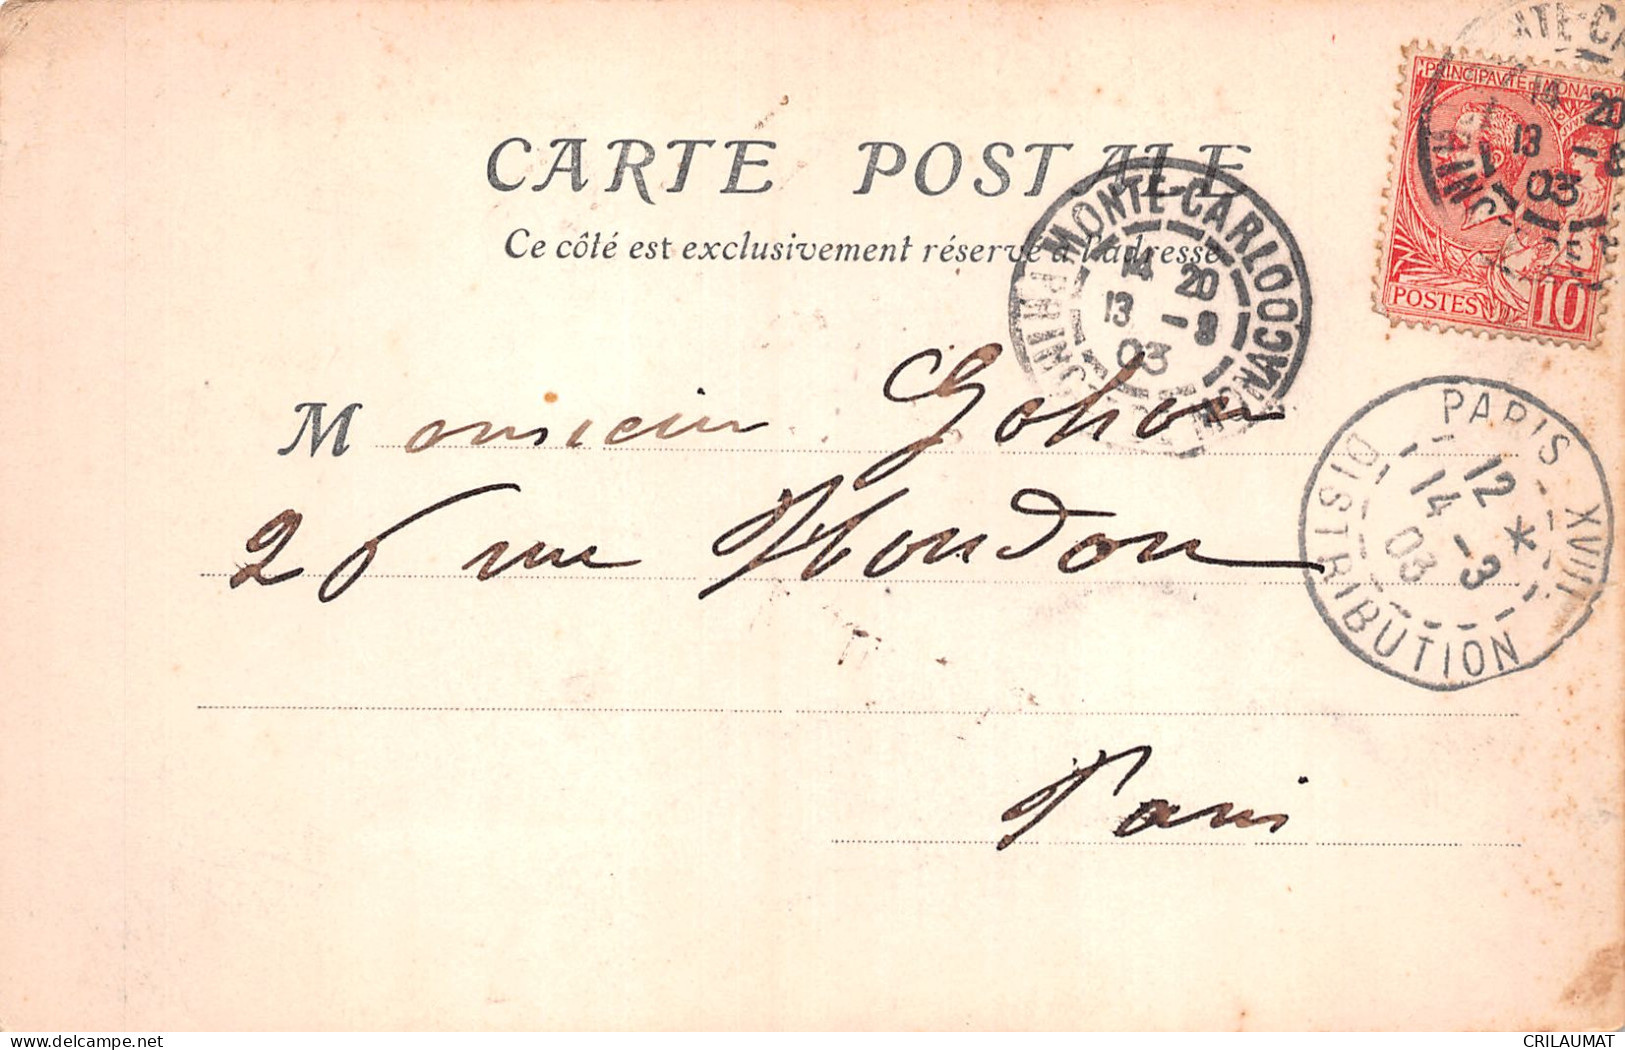 CARTE POSTALE
Ce côté est exclusivement réservé à l'adresse
PRINCIPAUTÉ DE MONACO
POSTES 10
MONTE-CARLO
14 20
13 -3
03
PRINCIPTE MONACO
PARIS XVIII
12 *
14 -3
03
DISTRIBUTION
Monsieur Gohon
26 rue Houdon
Paris
CRILAUMAT